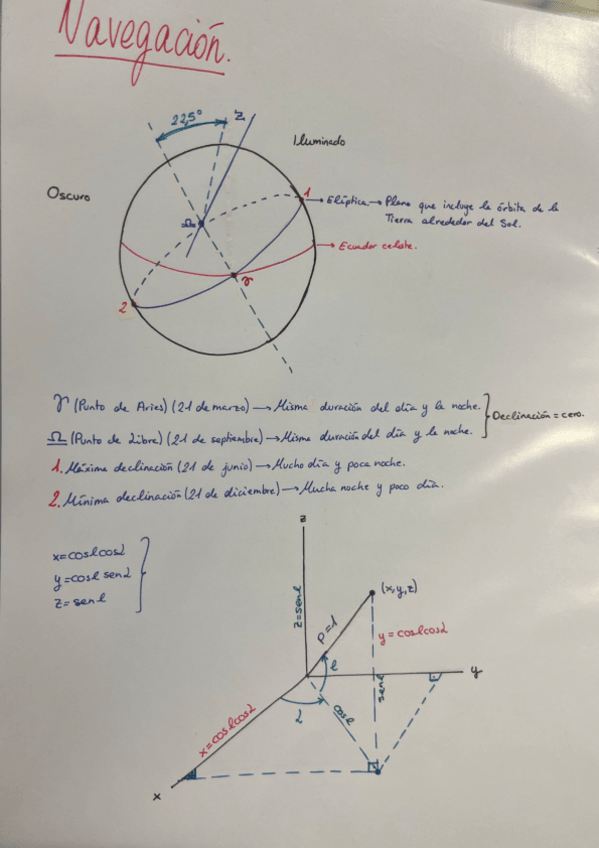 Navegación.
22,5°
Z
Iluminado
Oscuro
1 → Elíptica → Plano que incluye la órbita de la
Tierra alrededor del Sol.
♎
→ Ecuador celeste.
♈
2
♈ (Punto de Aries) (21 de marzo) → Misma duración del día y la noche.
♎ (Punto de Libra) (21 de septiembre) → Misma duración del día y la noche.
Declinación = cero.
1. Máxima declinación (21 de junio) → Mucho día y poca noche.
2. Mínima declinación (21 de diciembre) → Mucha noche y poco día.
x=cosl cosL
y=cosl senL
z=senl
z
z=senl
(x,y,z)
ρ=1
y=coslcosL
l
y
senl
L
cosl
x=coslcosL
x